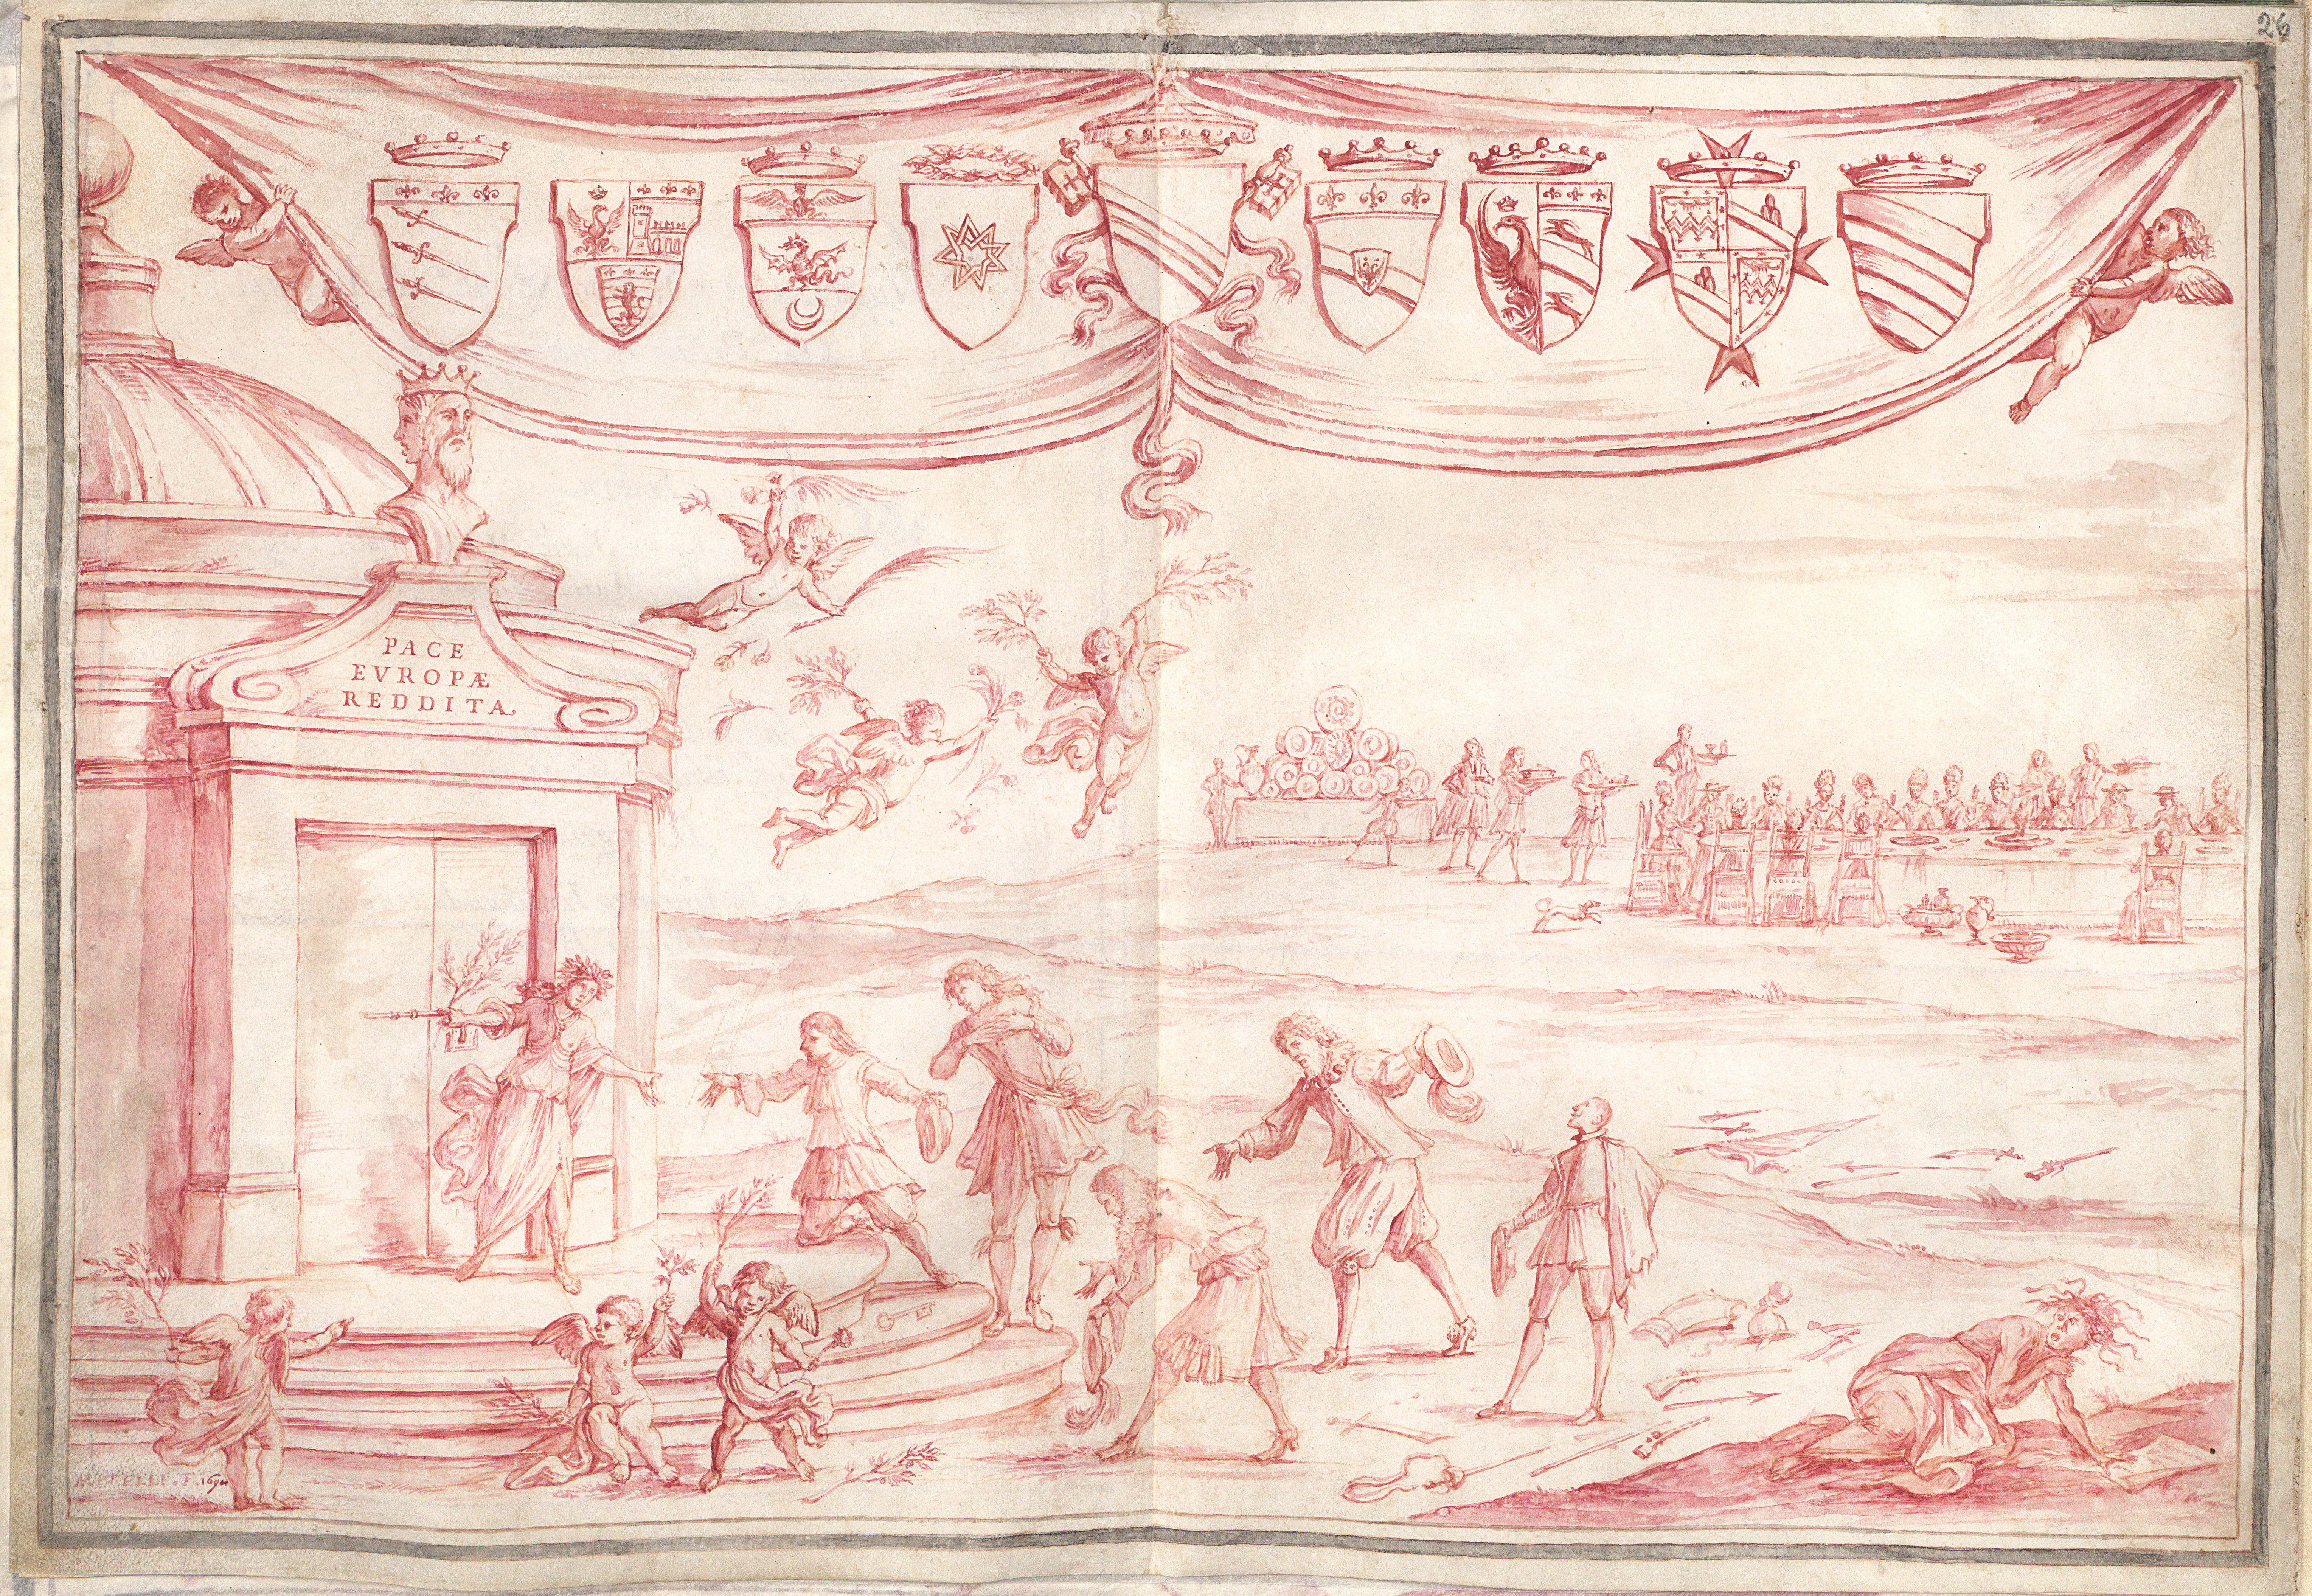 26
PACE
EVROPÆ
REDDITA